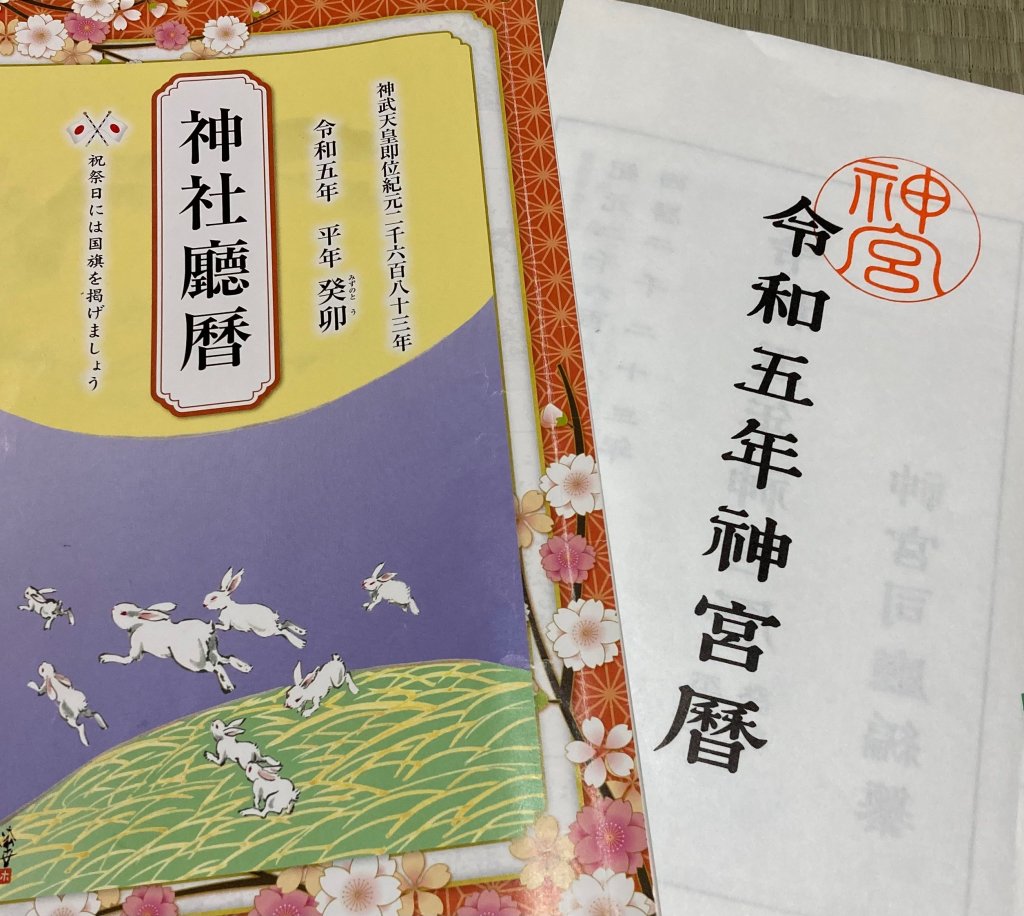 神武天皇即位紀元二千六百八十三年
令和五年 平年 癸卯
みずのと う
神社廳暦
祝祭日には国旗を掲げましょう
神宮
令和五年神宮暦